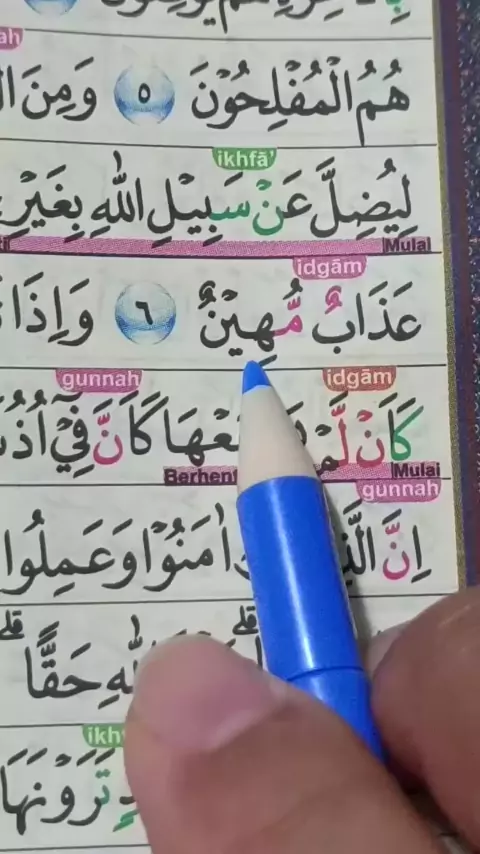 هُمُ الْمُفْلِحُوْنَ ٥ وَمِنَ
ikhfā'
لِيُضِلَّ عَنْ سَبِيْلِ اللّٰهِ بِغَيْرِ
Mulai
idgām
عَذَابٌ مُّهِيْنٌ ٦ وَاِذَا
gunnah idgām
كَاَنْ لَّمْ كَاَنَّ فِيْٓ
Mulai
gunnah
اِنَّ اٰمَنُوْا وَعَمِلُوا
حَقًّا
تَرَوْنَهَا